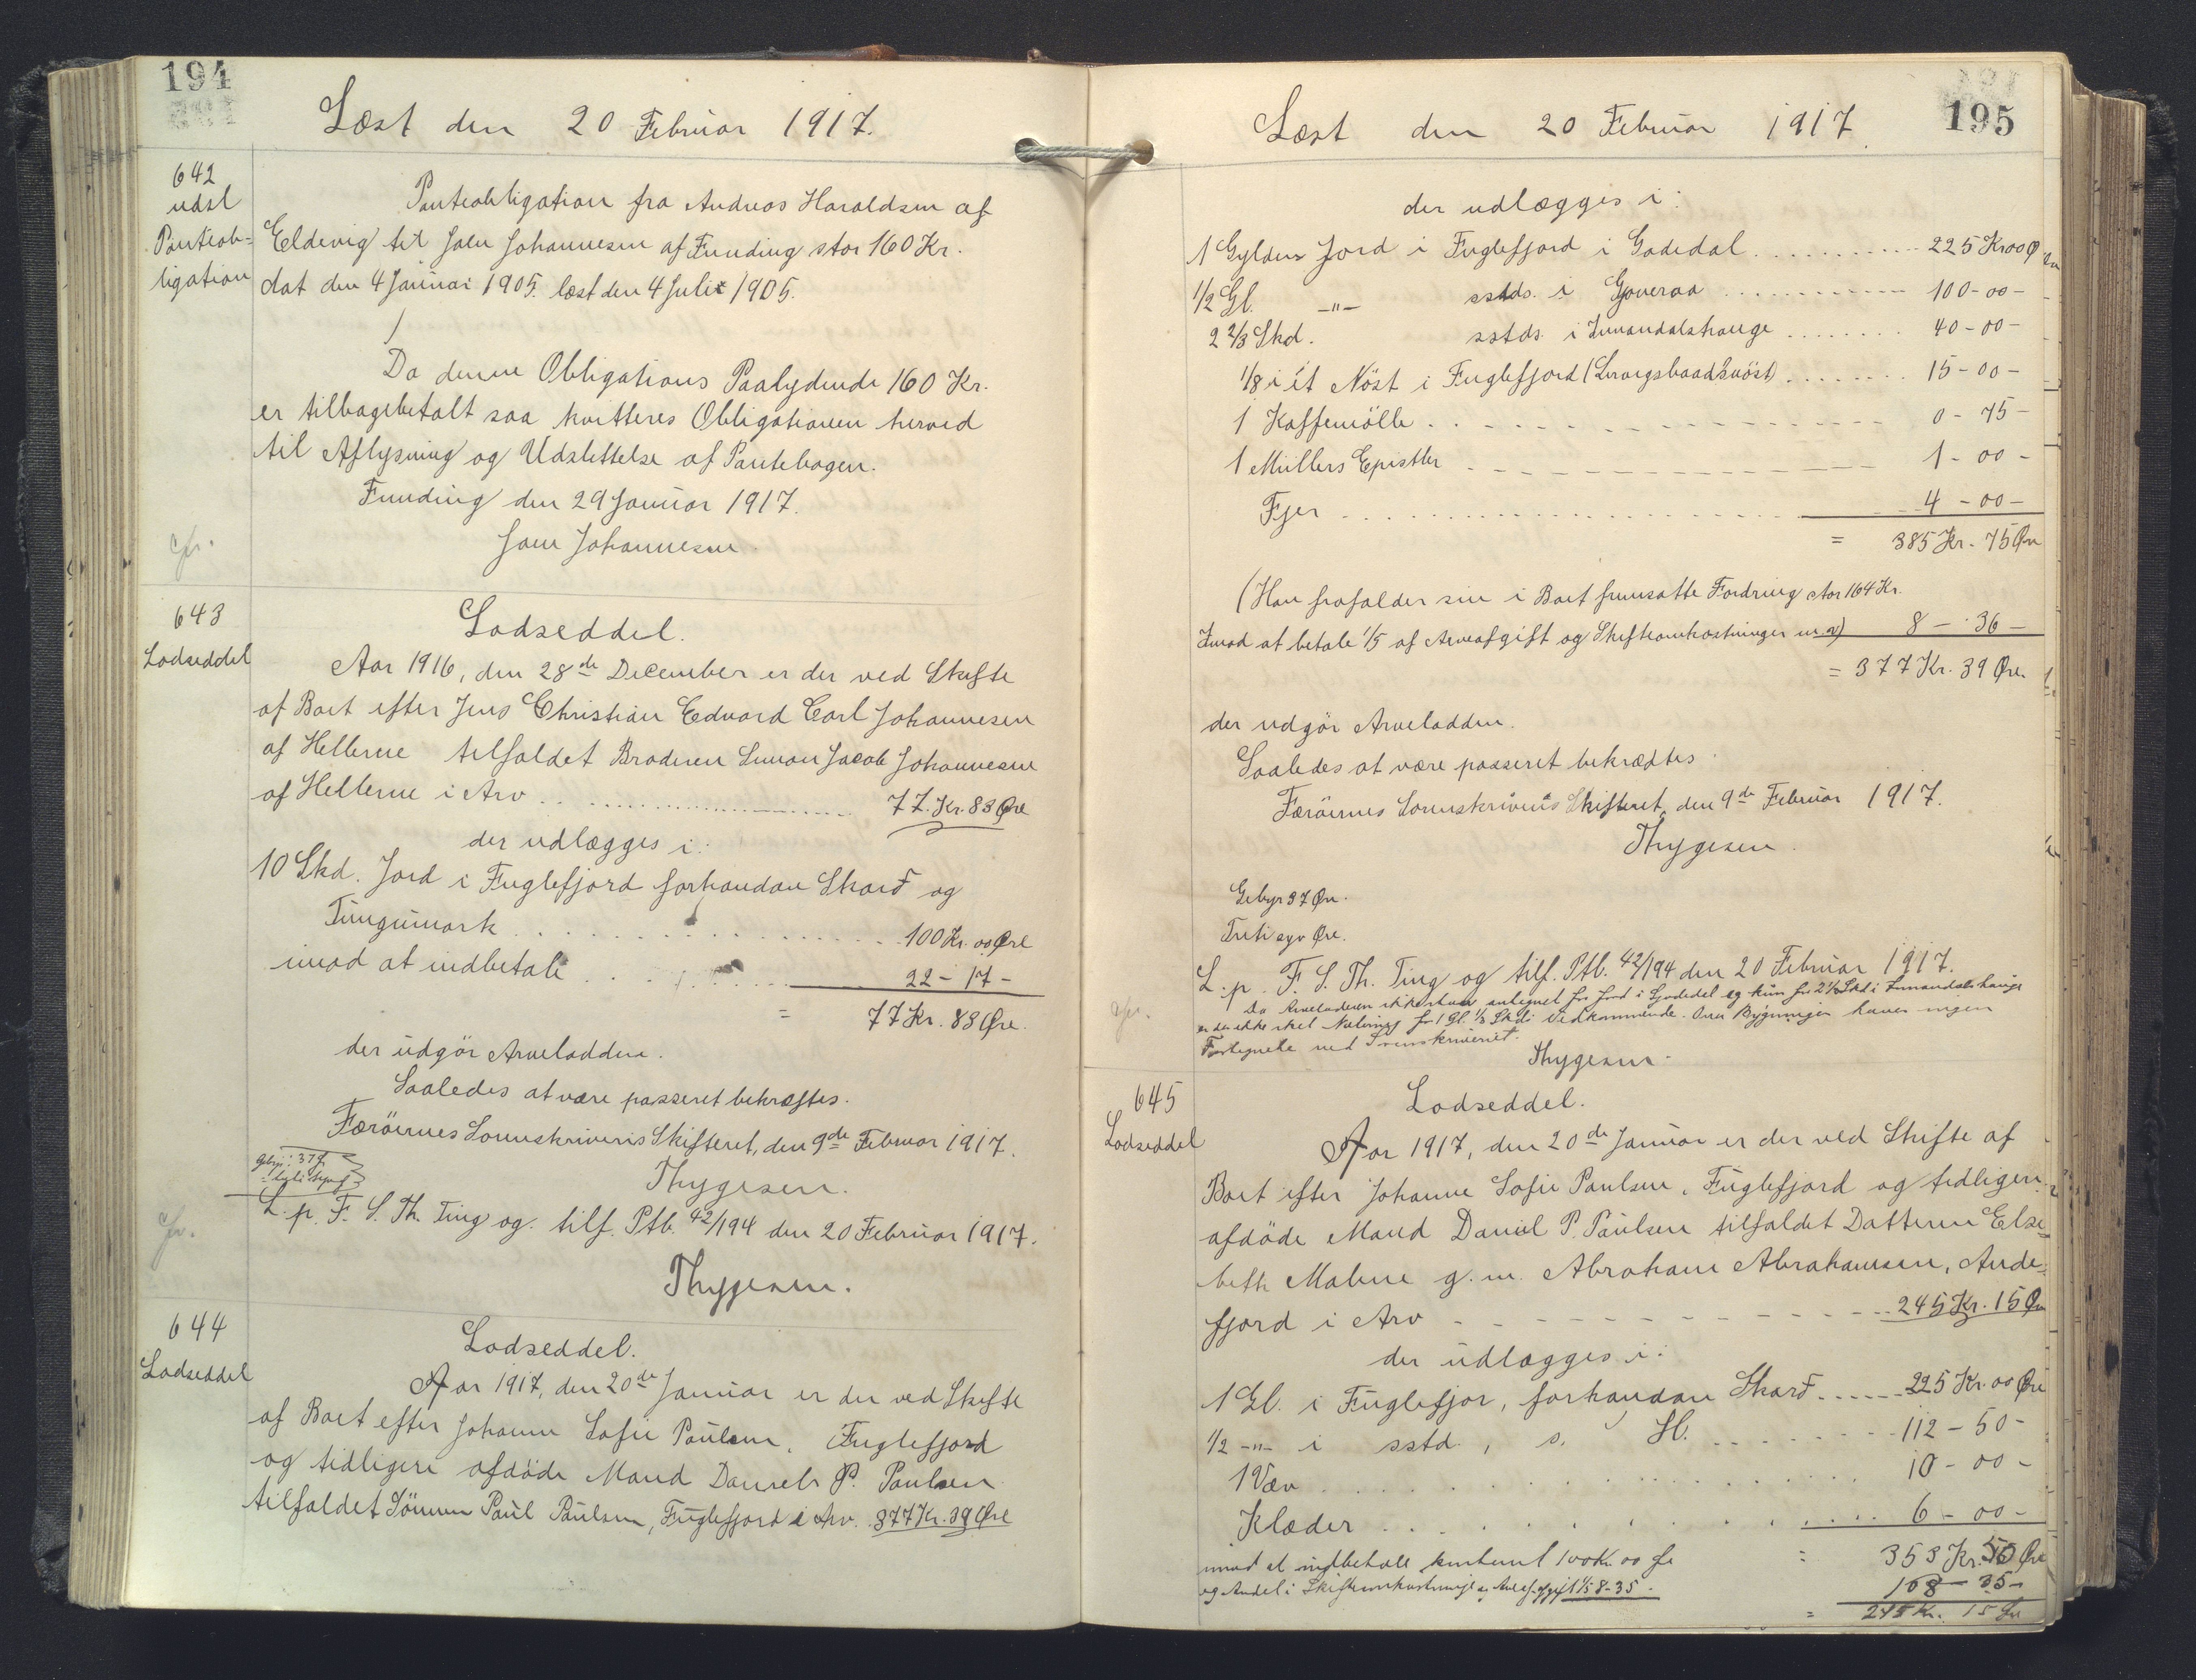 194
Læst den 20 Februar 1917.
642
udsl
Panteob-
ligation
Panteobligation fra Andreas Haraldsen af
Eldevig til Joen Johannesen af Funding stor 160 Kr.
dat den 4 Januar 1905. læst den 4 Juli 1905.
Da denne Obligations Paalydende 160 Kr.
er tilbagebetalt saa kvitteres Obligationen herved
til Aflysning og Udslettelse af Pantebogen.
Funding den 29 Januar 1917.
Joen Johannesen
643
Lodseddel
Lodseddel.
Aar 1916, den 28de December er der ved Skifte
af Boet efter Jens Christian Edvard Carl Johannesen
af Hellerne tilfaldet Broderen Simon Jacob Johannesen
af Hellerne i Arv . . . . . . . . . . 77. Kr. 83 Øre
der udlægges i:
10 Skd. Jord i Fuglefjord forhandan Skarð og
Tungumark . . . . . . . . . . 100 Kr. 00 Øre
imod at indbetale . . . . . . . . 22 - 17 -
= 77 Kr. 83 Øre.
der udgör Arvelodden.
Saaledes at være passeret bekræftes.
Færöernes Sorenskriveris Skifteret, den 9de Februar 1917.
Gebyr: 37 Ø.
Thygesen.
L. p. F. S. Th. Ting og tilf. Ptb. 42/194 den 20 Februar 1917.
Thygesen.
644
Lodseddel
Lodseddel.
Aar 1917, den 20de Januar er der ved Skifte
af Boet efter Johanne Sofie Paulsen, Fuglefjord
og tidligere afdöde Mand Daniel P. Paulsen
tilfaldet Sönnen Paul Paulsen, Fuglefjord i Arv. 377 Kr. 39 Øre
195
Læst den 20 Februar 1917
der udlægges i:
1 Gylden Jord i Fuglefjord i Gødedal . . . . . . . . . . 225 Kr 00 Ø
1/2 Gl. -"- sstds. i Gjoveraa . . . . . . . . . . 100 - 00 -
2 2/3 Skd. sstds. i Innandalshauge . . . . . . . . 40 - 00 -
1/8 i ít Nöst i Fuglefjord . . . . . . . . 15 - 00 -
1 Kaffemölle . . . . . . . . . . 0 - 75 -
1 Müllers Epistler . . . . . . . . . . 1 - 00 -
Fjer . . . . . . . . . . 4 - 00 -
= 385 Kr. 75 Øre
(Han frafalder sin i Boet fremsatte Fordring stor 164 Kr.
Imod at betale 1/5 af Arveafgift og Skifteomkostninger m. v) 8 - 36 -
= 377 Kr. 39 Øre.
der udgör Arvelodden.
Saaledes at være passeret bekræftes
Færöernes Sorenskriveris Skifteret, den 9de Februar 1917.
Thygesen.
Gebyr 37 Øre.
Treti syv Øre.
L. p. F. S. Th. Ting og tilf. Ptb. 42/194 den 20 Februar 1917.
Da Arveladeren ikke staar antegnet for Jord i Gjodedal og kun for 2 1/3 Skd i Innandals hauge
er der ikke skel for 1 Gl. 1/3 Skd i Vedkommende. Over Bygninger haves ingen
Fortegnelse ved Sorenskriveriet.
Thygesen.
645
Lodseddel
Lodseddel.
Aar 1917, den 20de Januar er der ved Skifte af
Boet efter Johanne Sofie Paulsen, Fuglefjord og tidligere
afdöde Mand Daniel P. Paulsen tilfaldet Datteren Else-
beth Malene g. m. Abraham Abrahamsen, Ande-
fjord i Arv - - - - - - - - - - 245 Kr. 15 Øre
der udlægges i:
1 Gl. i Fuglefjor, forhandan Skarð . . . . . . 225 Kr. 00 Øre
1/2 -"- i sstd., s. St. . . . . . . . . 112 - 50 -
1 Væv . . . . . . . . . . 10 - 00 -
Klæder . . . . . . . . . . 6 - 00 -
imod at indbetale kontant 100 Kr. 00 Øre = 353 Kr. 50 Øre
og Andel i Skifteomkostninge og Arveafgift 1/5 8 - 35 . 108 - 35 -
= 245 Kr. 15 Øre